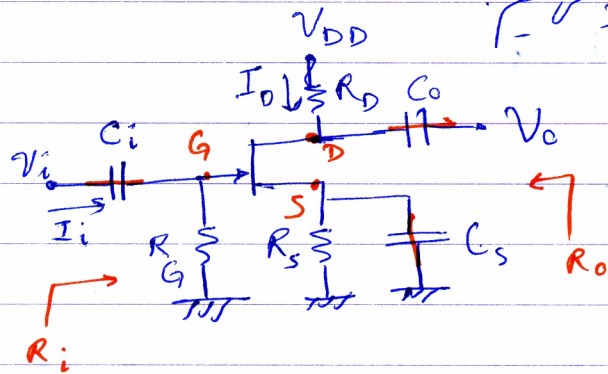 VDD
ID RD
Co
Vo
Ci
G
D
Vi
S
Ii
RG
Rs
Cs
Ro
Ri